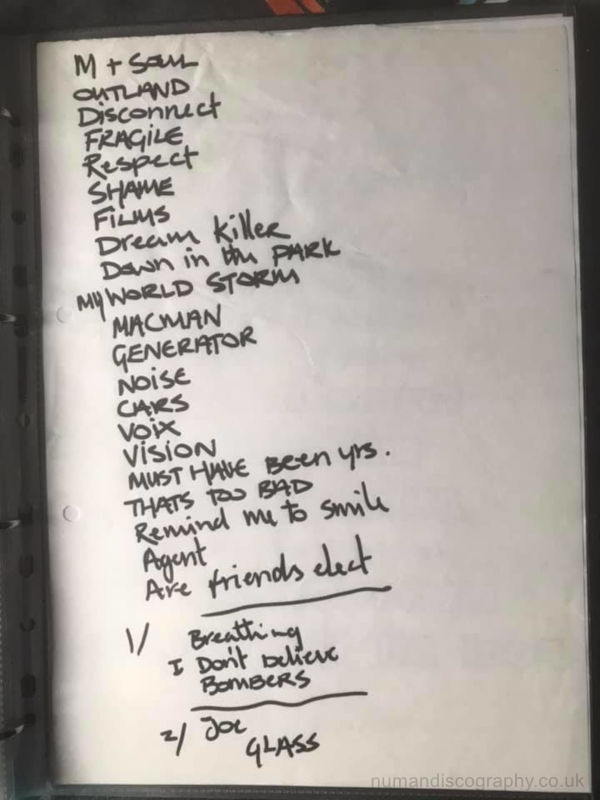 M + SOUL
OUTLAND
Disconnect
FRAGILE
Respect
SHAME
FILMS
Dream Killer
Down in the PARK
MY WORLD STORM
MACMAN
GENERATOR
NOISE
CARS
VOIX
VISION
MUST HAVE BEEN yrs.
THATS TOO BAD
Remind me to smile
Agent
Are friends elect
1/ Breathing
I Don't believe
BOMBERS
2/ Joe
GLASS
numandiscography.co.uk